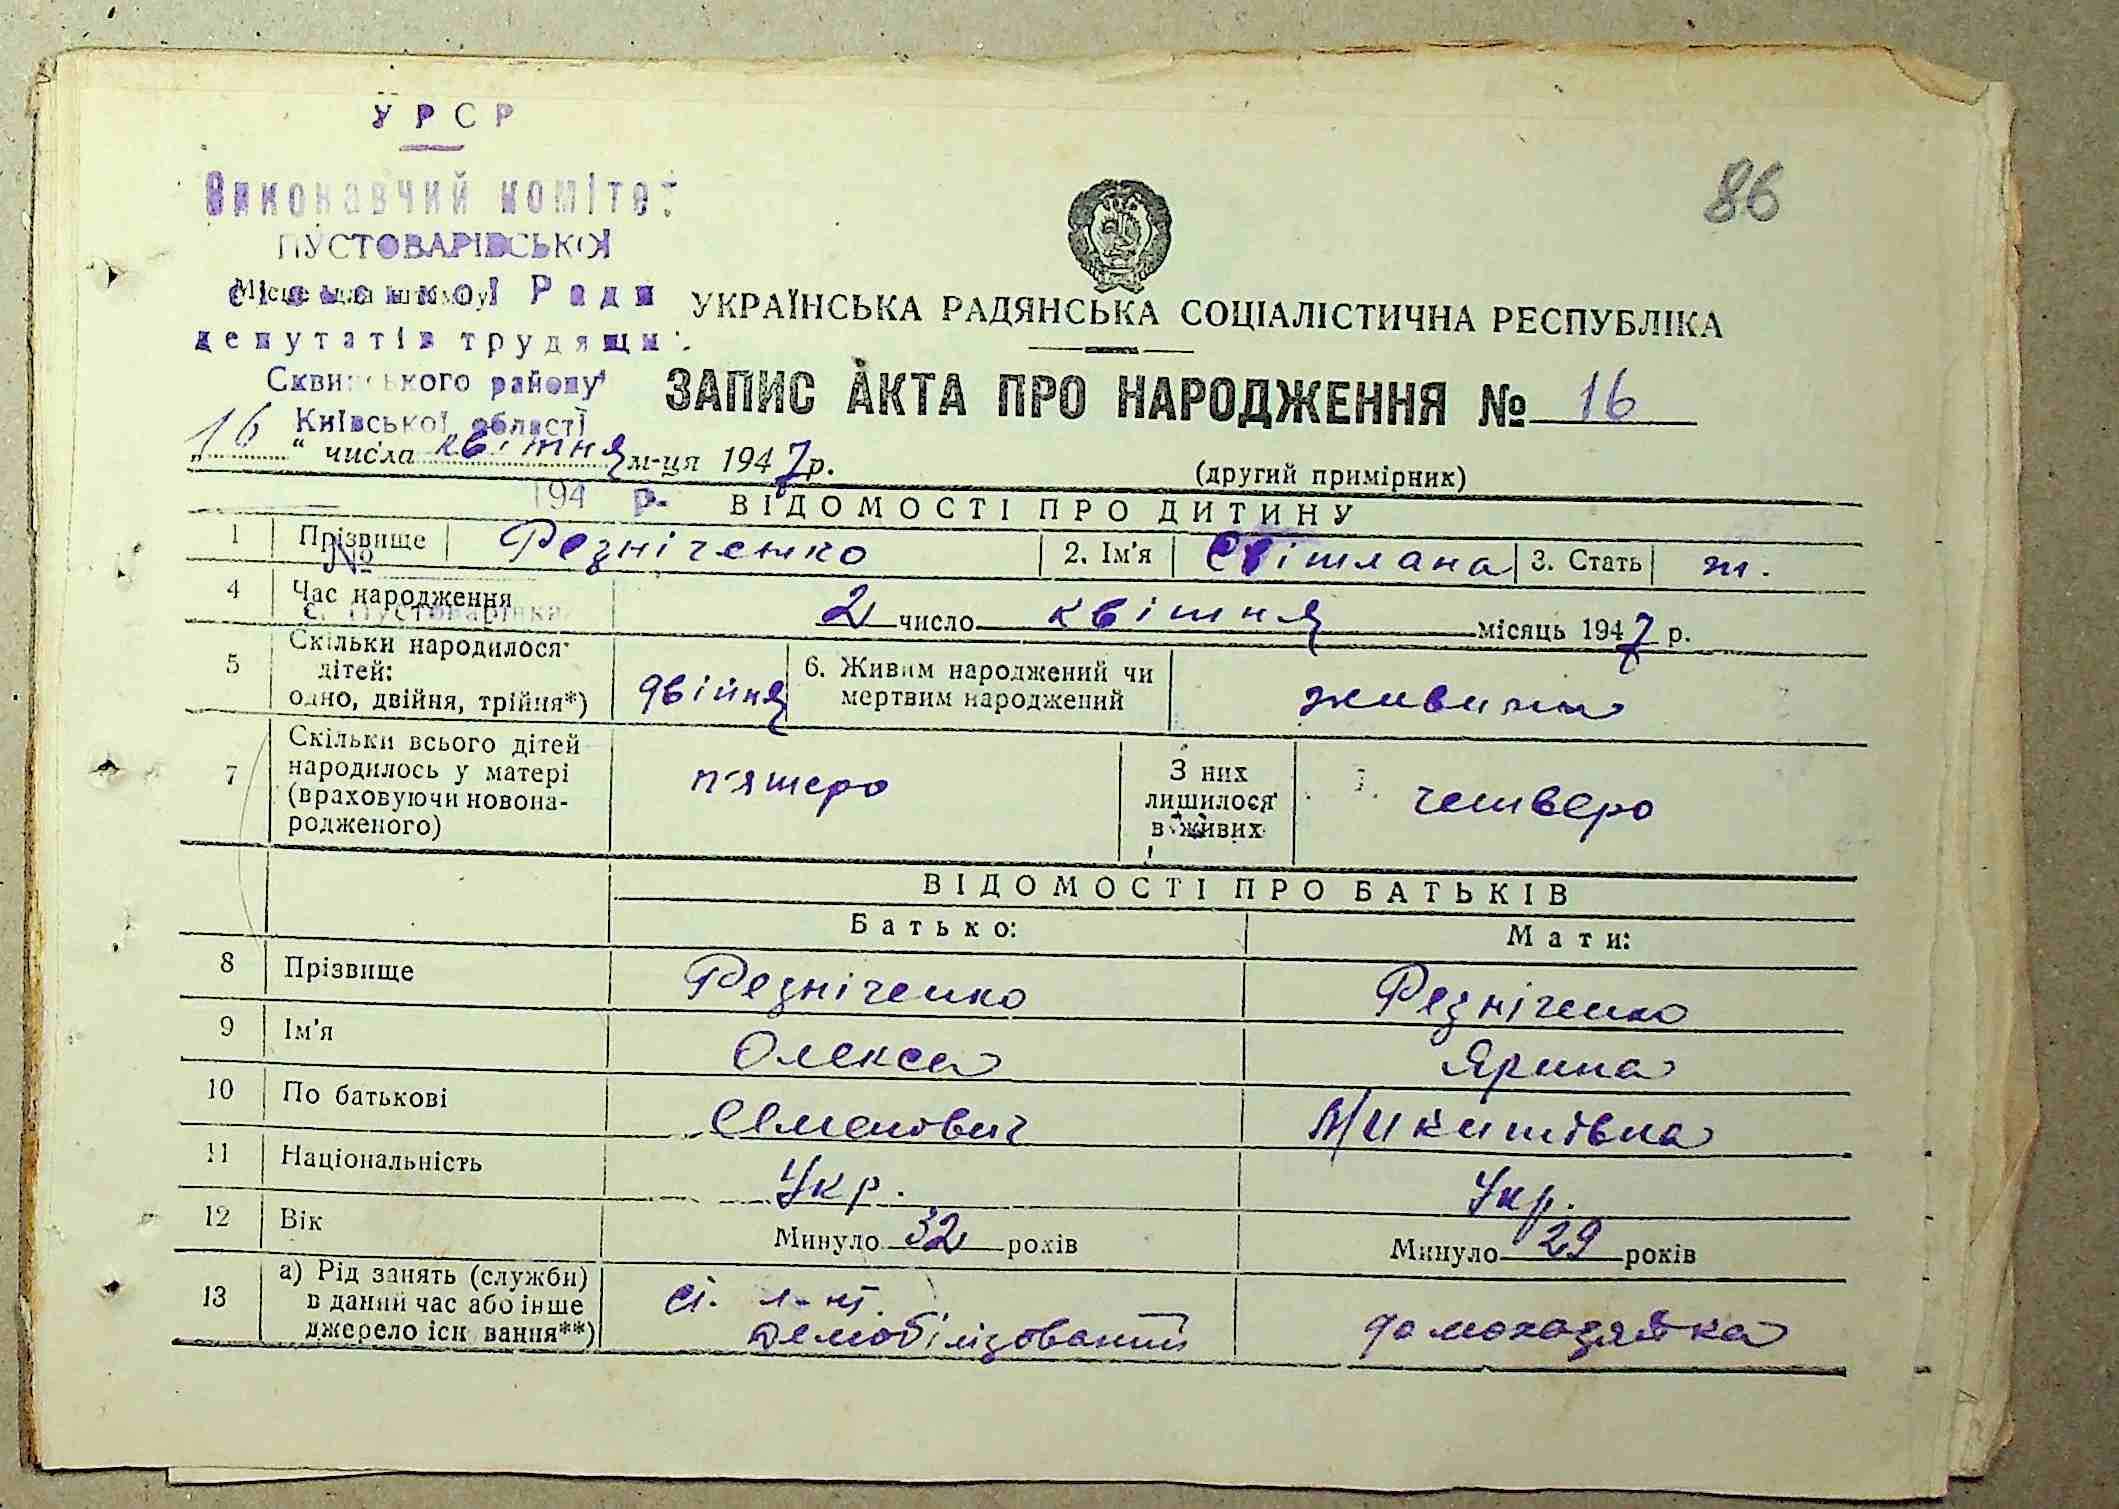 УРСР
86
Виконавчий комітет
ПУСТОВАРІВСЬКОЇ
Місце для штампу
сільської Ради
УКРАЇНСЬКА РАДЯНСЬКА СОЦІАЛІСТИЧНА РЕСПУБЛІКА
депутатів трудящих
Сквирського району
ЗАПИС АКТА ПРО НАРОДЖЕННЯ № 16
Київської області
„16“ числа квітня м-ця 1947 р.
(другий примірник)
194 р.
ВІДОМОСТІ ПРО ДИТИНУ
1 Прізвище Резніченко 2. Ім'я Світлана 3. Стать ж.
№
4 Час народження 2 число квітня місяць 1947 р.
с. Пустоварівка
5 Скільки народилося дітей: одно, двійня, трійня*) двійня 6. Живим народжений чи мертвим народжений живим
7 Скільки всього дітей народилось у матері (враховуючи новонародженого) п'ятеро З них лишилося в живих четверо
ВІДОМОСТІ ПРО БАТЬКІВ
Батько: Мати:
8 Прізвище Резніченко Резніченко
9 Ім'я Олекса Ярина
10 По батькові Семенович Микитівна
11 Національність Укр. Укр.
12 Вік Минуло 32 років Минуло 29 років
13 а) Рід занять (служби) в даний час або інше джерело існування**) ст. л-нт. демобілізований домохазяйка